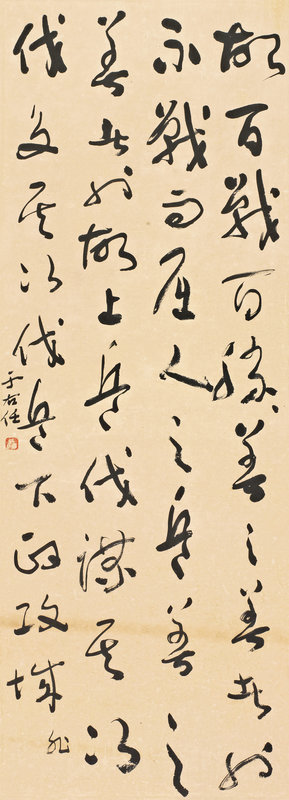 故百戰百勝善之善者也
不戰而屈人之兵善之
善者也故上兵伐謀其次
伐交其次伐兵下政攻城 非
于右任